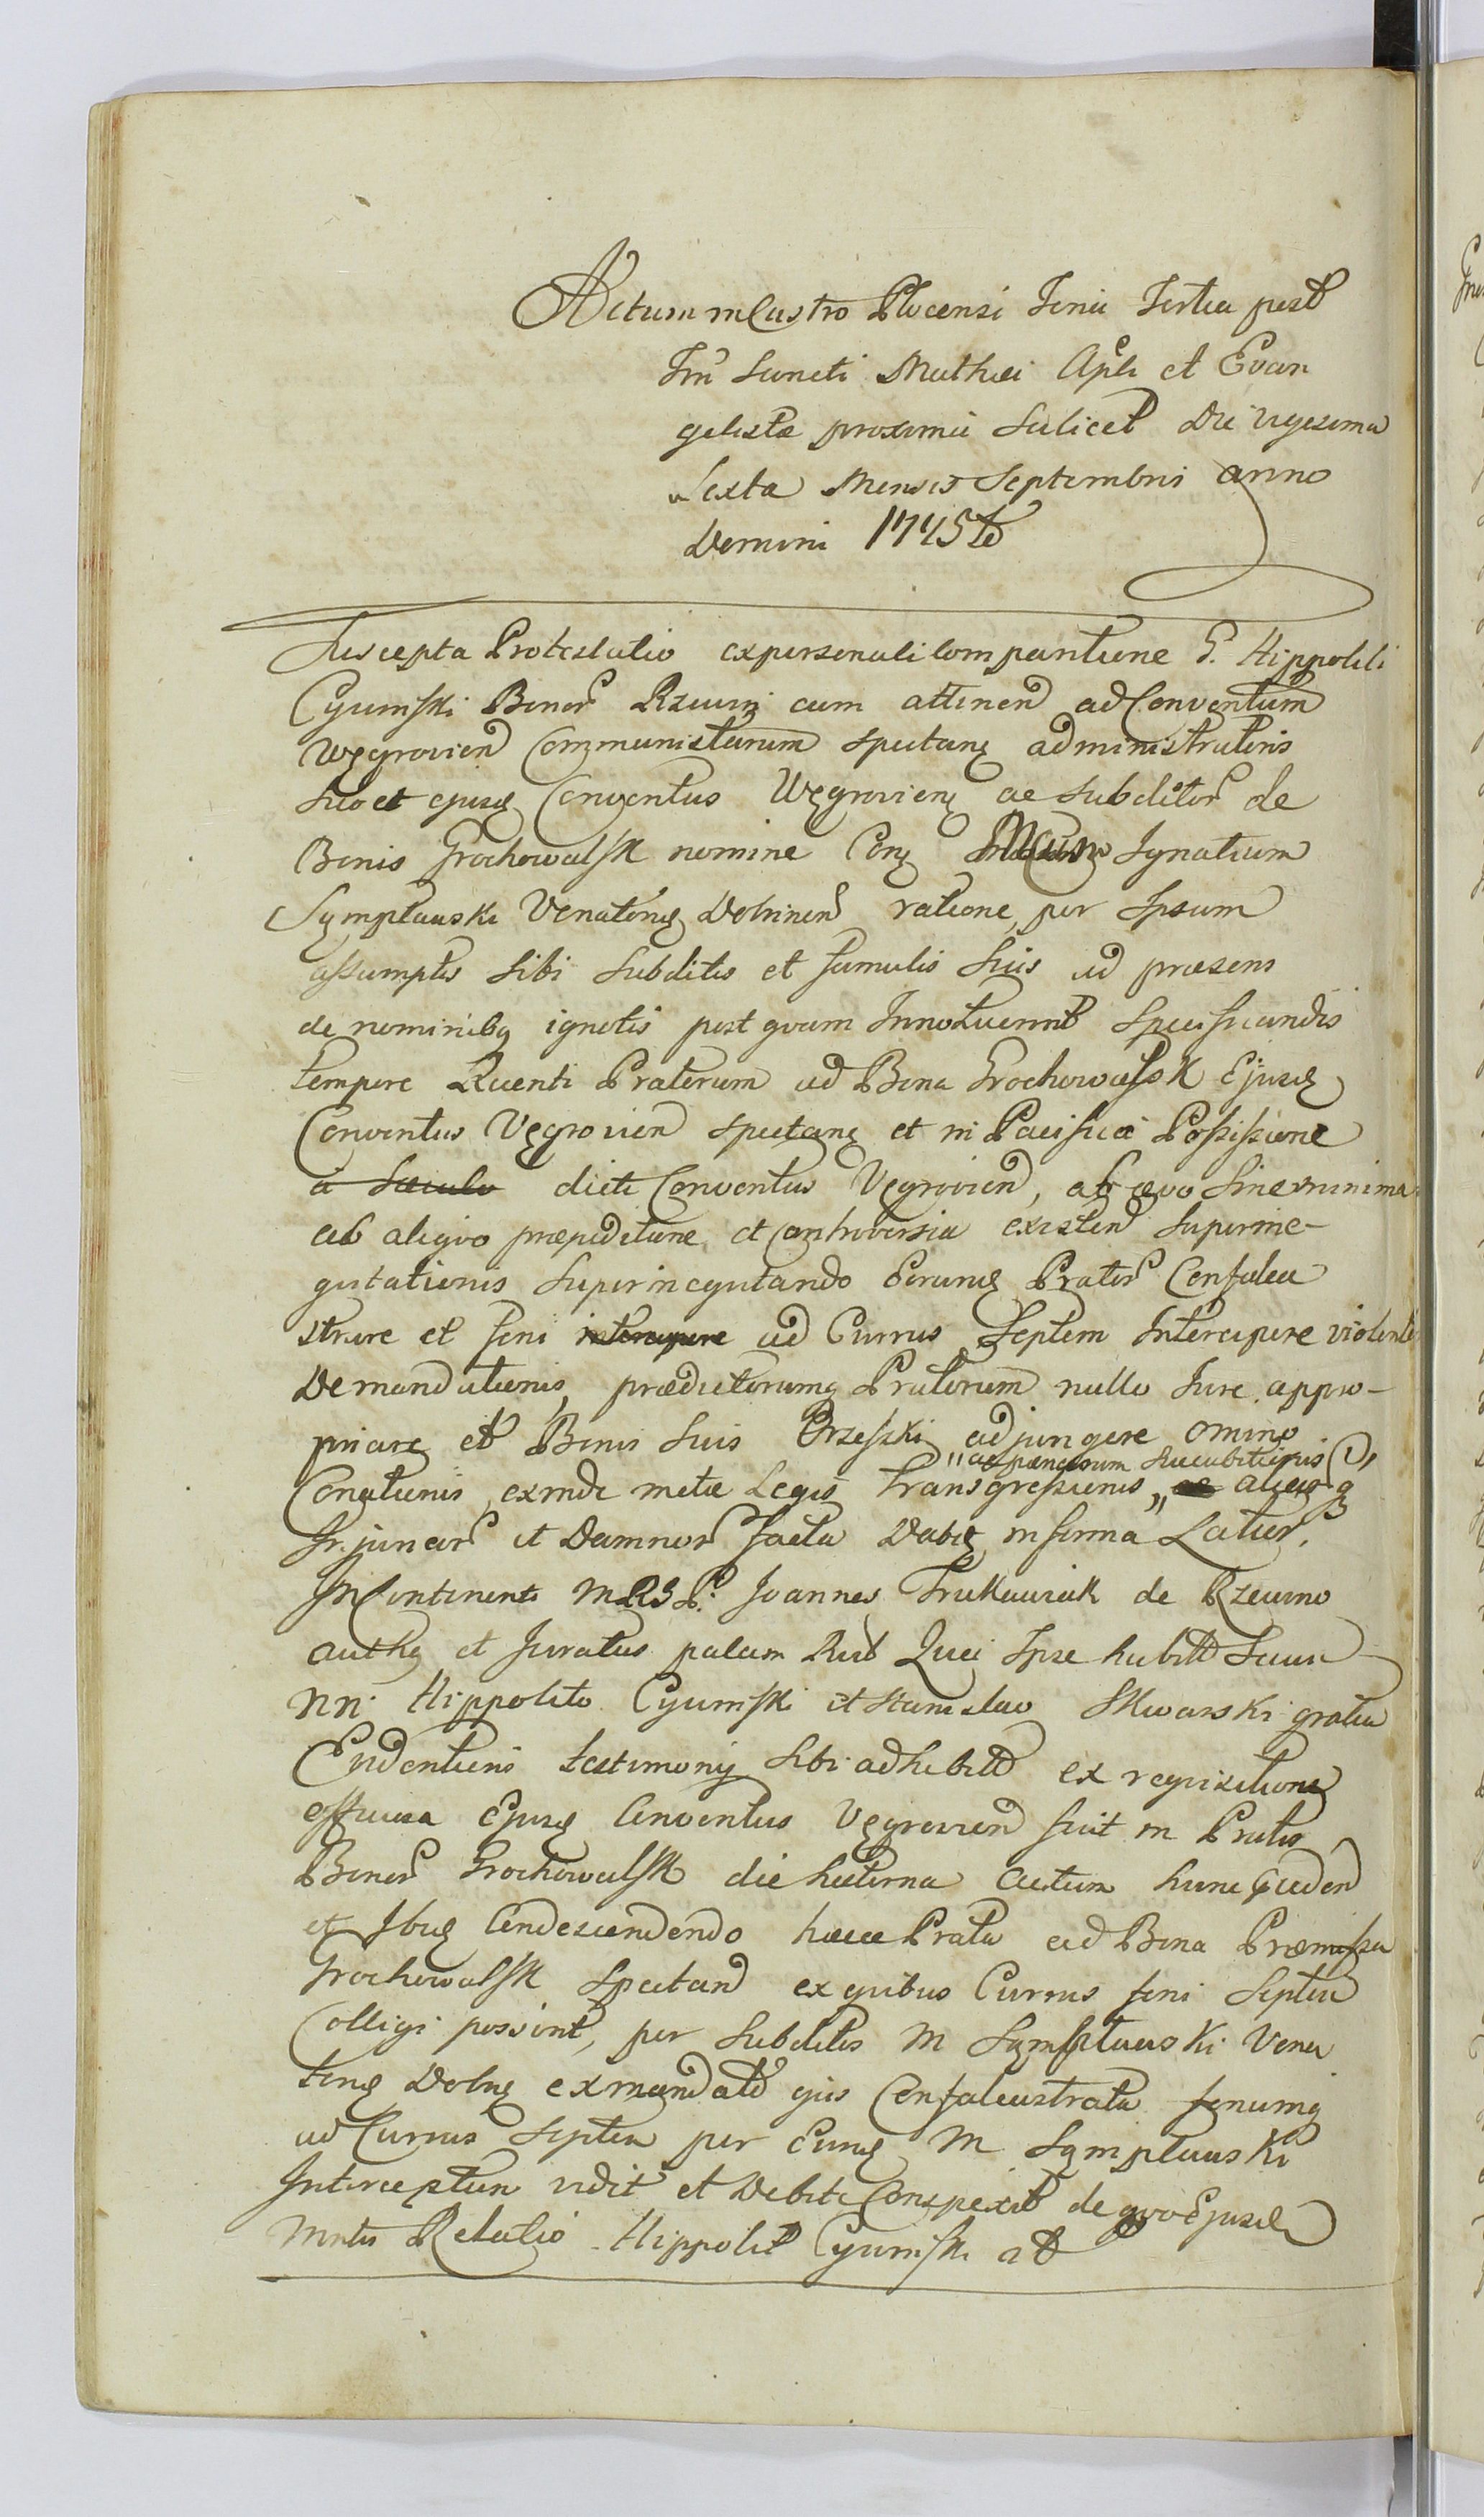 Actum in Castro Plocensi Feria Tertia post
Fm Sancti Mathei Apli et Evan
gelistæ proxima Scilicet Die vigesima
Sexta Mensis Septembris anno
Domini 1745to
Suscepta Protestatio ex personali Comparitione G. Hippoliti
Cyumski Bonor Rzewin cum attinen ad Conventum
Węgrovien Communistarum spectanq administratoris
suo et ejusq Conventus Węgrovienq ac subditor de
Bonis Grochowalsk nomine Conq Mcum Ignatium
Symplawski Venatorq Dobrinen ratione per Ipsum
assumptis sibi subditis et famulis suis ad præsens
de nominibq ignotis post quam Innotuerint specificandis
tempore Recenti Pratorum ad Bona Grochowalsk Ejusq
Conventus Vęgrovien spectanq et in Pacifica Possissione
a Sæculo dicti Conventus Vęgrovien, ab ævo sine minima
ab aliquo præpeditione et Controversia existen superine-
quitationis superinequitando Eorumq Prator Confalca
strare et feni intercipere ad Currus Septem Intercipere violente
Demandationis, prædictorumq Pratorum nullo Jure appro-
priare et Bonis suis Orzeszki adjungere omino
"ac pænarum succubitionis
Conationis exinde metæ Legis transgressionis " ac aliarq
Injuriar et Damnor facta Dabiq in forma Latior.
In Continenti MRSP. Joannes Trukawiak de Rzewino
authq et Juratus palam Rcut Quia Ipse habitt Secum
NN. Hippolito Cyumski et Stanislao Skwarski gratia
Evidentioris testimonij sibi adhibitt ex requisitione
officiosa Ejusq Conventus Vęgrovien fuit in Pratis
Bonor Grochowalsk die hesterna actum hunc præceden
et Ibiq Condescendendo hæcce Prata ad Bona Præmissa
Grochowalsk spectand ex quibus Currus feni septem
Colligi possint, per subditos M Symplawski Vena
torq Dobrq ex mandatt ejus Confalcastrata fenumq
ad Currus Septem per Eumq M Symplawski
Interceptum vidit et Debite Conspexit de quo Ejusd
Mntis Relatio Hippolit Cyumski att